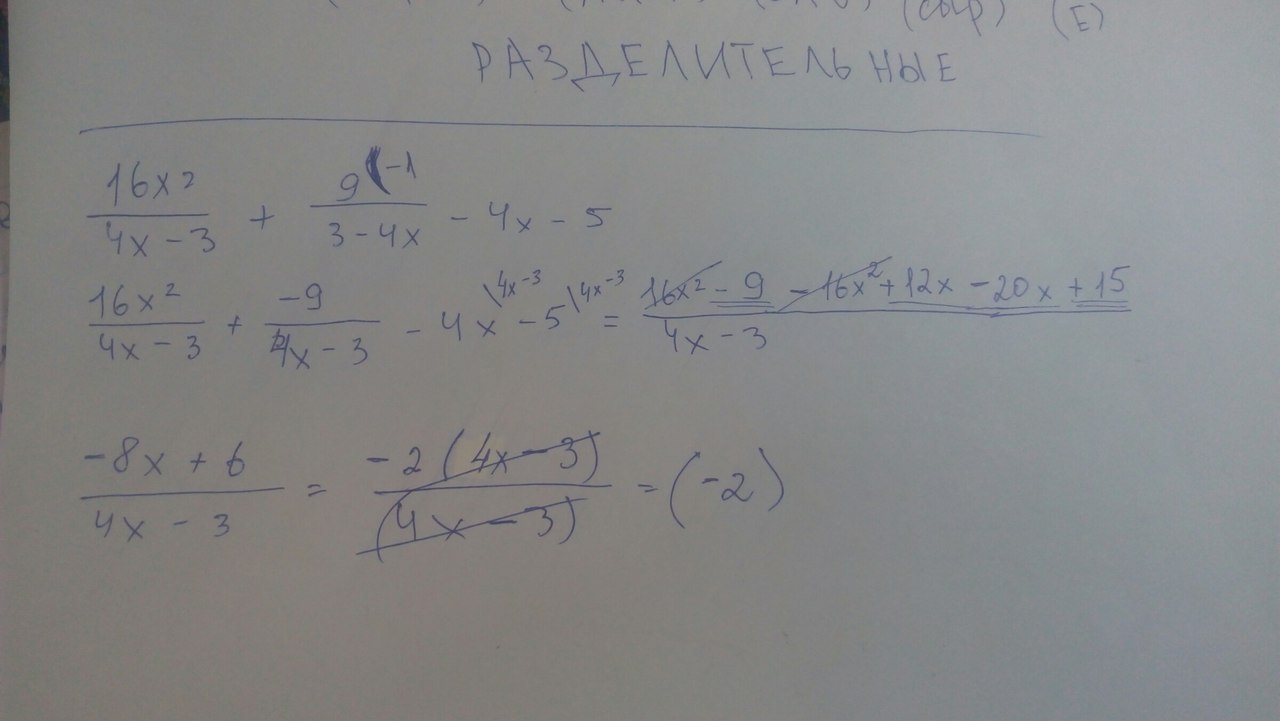 (сыр) (Е)
РАЗДЕЛИТЕЛЬНЫЕ
16x² / 4x - 3 + 9(-1 / 3 - 4x - 4x - 5
16x² / 4x - 3 + -9 / 4x - 3 - 4x \4x-3 - 5 \4x-3 = 16x² - 9 - 16x² + 12x - 20x + 15 / 4x - 3
-8x + 6 / 4x - 3 = -2 (4x - 3) / (4x - 3) = (-2)